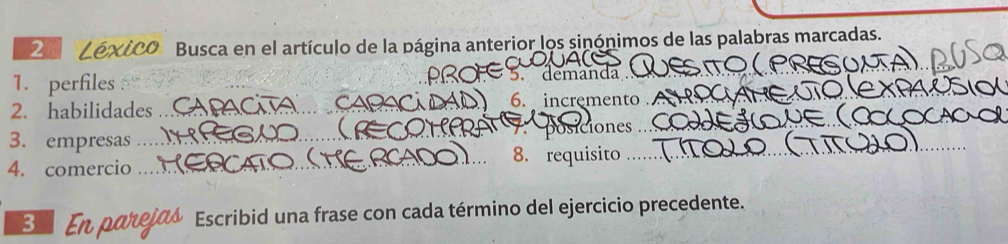 2 Léxico Busca en el artículo de la página anterior los sinónimos de las palabras marcadas.
1. perfiles PROFESSIONALES 5. demanda QUESITO (PREGUNTA)
2. habilidades CAPACITA (CAPACIDAD) 6. incremento
3. empresas IMPEGNO 7. posiciones
4. comercio MERCATO (MERCADO) 8. requisito TITOLO (TITULO)
3 En parejas Escribid una frase con cada término del ejercicio precedente.